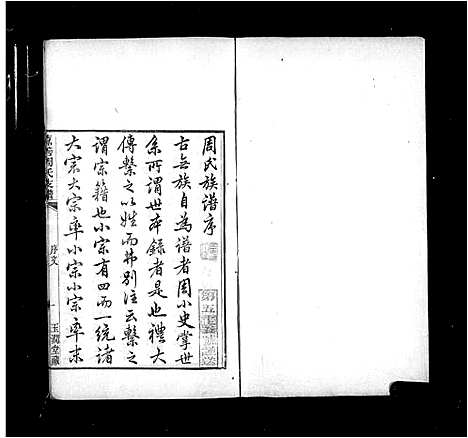 周氏族譜序
古無族自為譜者周小史掌世
系所謂世本錄者是也禮大
傳繫之以姓而弗別注云繫之
謂宗籍也小宗有四而一統諸
大宗大宗率小宗小宗率末
周氏支譜
序文
一
玉潤堂藏